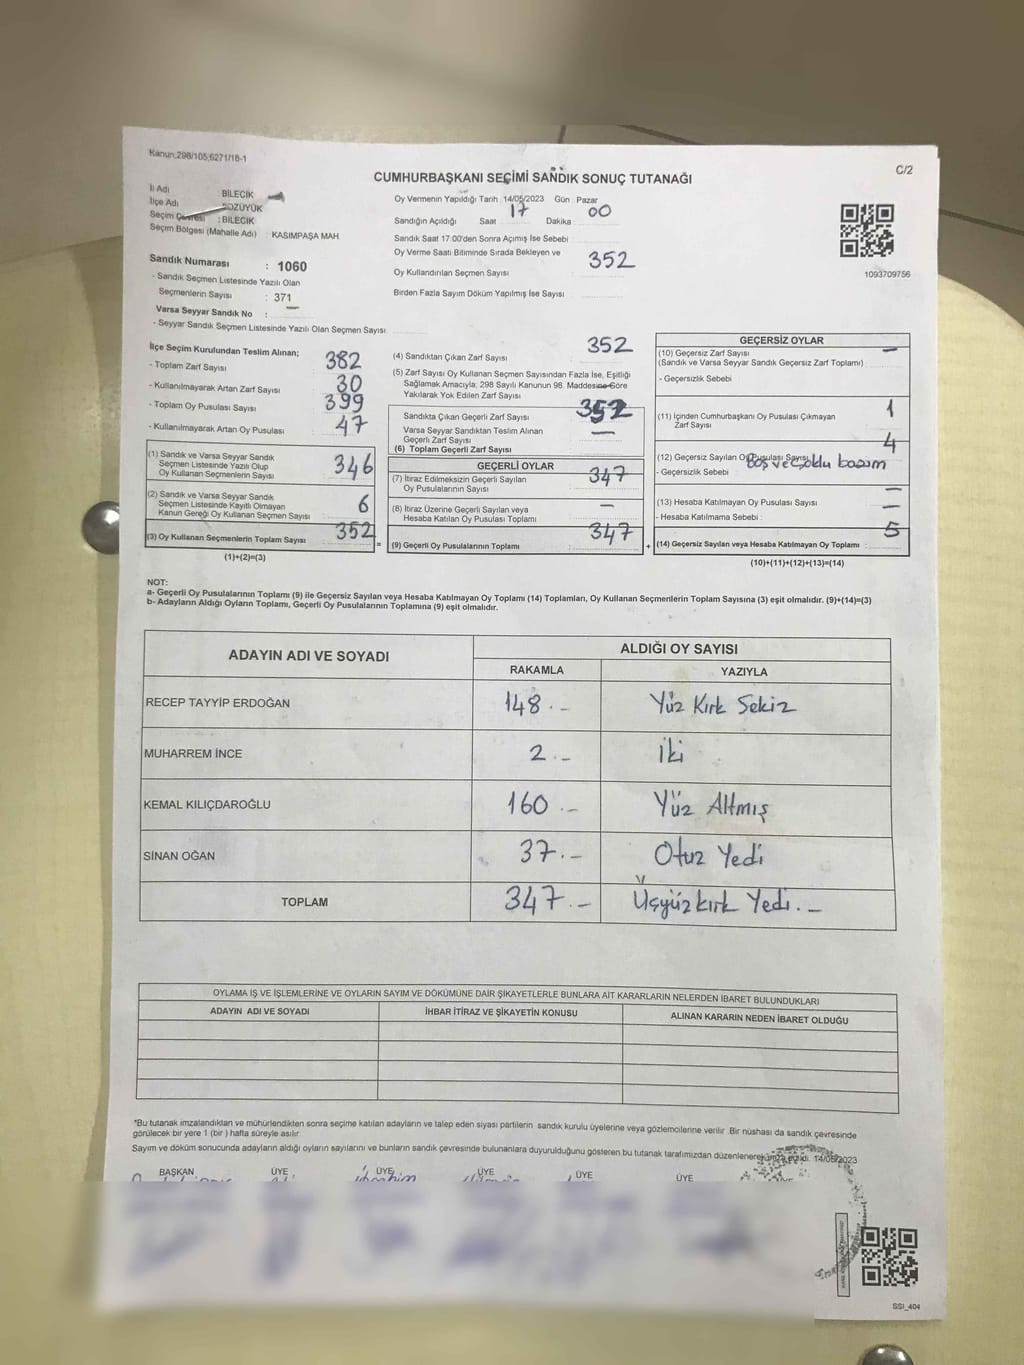 Kanun;298/105;6271/18-1
C/2
CUMHURBAŞKANI SEÇİMİ SANDIK SONUÇ TUTANAĞI
İl Adı : BİLECİK
İlçe Adı BOZÜYÜK
Seçim Çevresi : BİLECİK
Seçim Bölgesi (Mahalle Adı) : KASIMPAŞA MAH.
Sandık Numarası : 1060
- Sandık Seçmen Listesinde Yazılı Olan
Seçmenlerin Sayısı : 371
Varsa Seyyar Sandık No : —
- Seyyar Sandık Seçmen Listesinde Yazılı Olan Seçmen Sayısı
Oy Vermenin Yapıldığı Tarih 14/05/2023 Gün Pazar
Sandığın Açıldığı Saat 17 Dakika 00
Sandık Saat 17:00'den Sonra Açımış İse Sebebi
Oy Verme Saati Bitiminde Sırada Bekleyen ve
Oy Kullandırılan Seçmen Sayısı 352
Birden Fazla Sayım Döküm Yapılmış İse Sayısı
1093709756
İlçe Seçim Kurulundan Teslim Alınan;
- Toplam Zarf Sayısı 382
- Kullanılmayarak Artan Zarf Sayısı 30
- Toplam Oy Pusulası Sayısı 399
- Kullanılmayarak Artan Oy Pusulası 47
(1) Sandık ve Varsa Seyyar Sandık
Seçmen Listesinde Yazılı Olup
Oy Kullanan Seçmenlerin Sayısı 346
(2) Sandık ve Varsa Seyyar Sandık
Seçmen Listesinde Kayıtlı Olmayan
Kanun Gereği Oy Kullanan Seçmen Sayısı 6
(3) Oy Kullanan Seçmenlerin Toplam Sayısı 352 =
(1)+(2)=(3)
(4) Sandıktan Çıkan Zarf Sayısı 352
(5) Zarf Sayısı Oy Kullanan Seçmen Sayısından Fazla İse, Eşitliği
Sağlamak Amacıyla; 298 Sayılı Kanunun 98. Maddesine Göre
Yakılarak Yok Edilen Zarf Sayısı —
Sandıkta Çıkan Geçerli Zarf Sayısı 352
Varsa Seyyar Sandıktan Teslim Alınan
Geçerli Zarf Sayısı —
(6) Toplam Geçerli Zarf Sayısı
GEÇERLİ OYLAR
(7) İtiraz Edilmeksizin Geçerli Sayılan
Oy Pusulalarının Sayısı 347
(8) İtiraz Üzerine Geçerli Sayılan veya
Hesaba Katılan Oy Pusulası Toplamı —
(9) Geçerli Oy Pusulalarının Toplamı 347 +
GEÇERSİZ OYLAR
(10) Geçersiz Zarf Sayısı —
(Sandık ve Varsa Seyyar Sandık Geçersiz Zarf Toplamı)
- Geçersizlik Sebebi
(11) İçinden Cumhurbaşkanı Oy Pusulası Çıkmayan
Zarf Sayısı 1
(12) Geçersiz Sayılan Oy Pusulası Sayısı 4
- Geçersizlik Sebebi Boş ve Çoklu basım
(13) Hesaba Katılmayan Oy Pusulası Sayısı —
- Hesaba Katılmama Sebebi : —
(14) Geçersiz Sayılan veya Hesaba Katılmayan Oy Toplamı 5
(10)+(11)+(12)+(13)=(14)
NOT:
a- Geçerli Oy Pusulalarının Toplamı (9) ile Geçersiz Sayılan veya Hesaba Katılmayan Oy Toplamı (14) Toplamları, Oy Kullanan Seçmenlerin Toplam Sayısına (3) eşit olmalıdır. (9)+(14)=(3)
b- Adayların Aldığı Oyların Toplamı, Geçerli Oy Pusulalarının Toplamına (9) eşit olmalıdır.
ADAYIN ADI VE SOYADI ALDIĞI OY SAYISI
RAKAMLA YAZIYLA
RECEP TAYYİP ERDOĞAN 148.- Yüz Kırk Sekiz
MUHARREM İNCE 2.- İki
KEMAL KILIÇDAROĞLU 160.- Yüz Altmış
SİNAN OĞAN 37.- Otuz Yedi
TOPLAM 347.- Üçyüzkırk Yedi.-
OYLAMA İŞ VE İŞLEMLERİNE VE OYLARIN SAYIM VE DÖKÜMÜNE DAİR ŞİKAYETLERLE BUNLARA AİT KARARLARIN NELERDEN İBARET BULUNDUKLARI
ADAYIN ADI VE SOYADI İHBAR İTİRAZ VE ŞİKAYETİN KONUSU ALINAN KARARIN NEDEN İBARET OLDUĞU
*Bu tutanak imzalandıktan ve mühürlendikten sonra seçime katılan adayların ve talep eden siyasi partilerin sandık kurulu üyelerine veya gözlemcilerine verilir .Bir nüshası da sandık çevresinde
görülecek bir yere 1 (bir ) hafta süreyle asılır.
Sayım ve döküm sonucunda adayların aldığı oyların sayılarını ve bunların sandık çevresinde bulunanlara duyurulduğunu gösteren bu tutanak tarafımızdan düzenlenerek imza edildi. 14/05/2023
BAŞKAN ÜYE ÜYE ÜYE ÜYE ÜYE
İbrahim
SSI_404